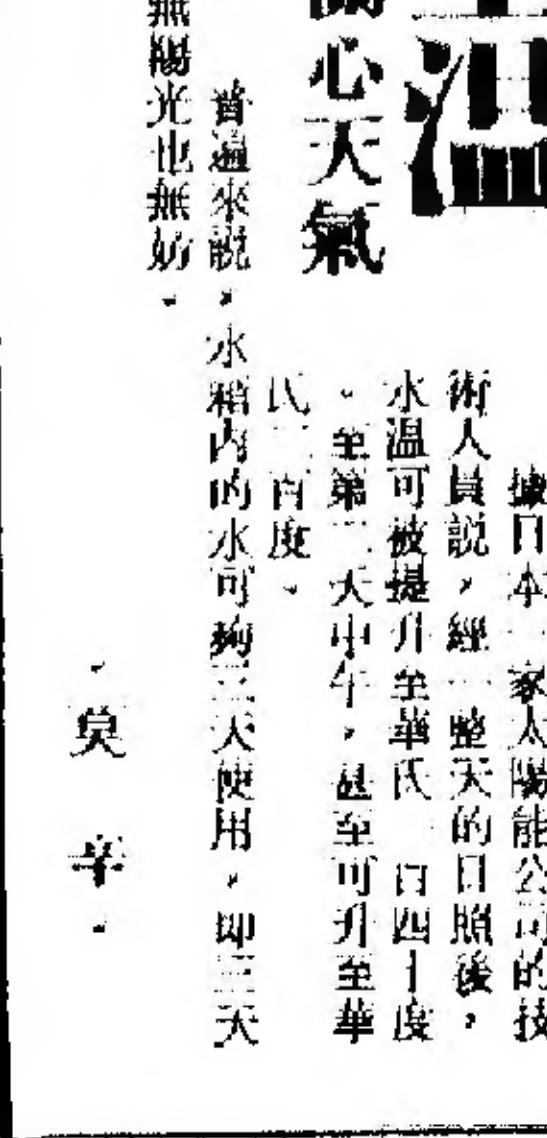 温
關心天氣
據日本一家太陽能公司的技
術人員説，經一整天的日照後，
水温可被提升至華氏一百四十度
。至第二天中午，甚至可升至華
氏二百度。
普遍來説，水箱内的水可夠三天使用，即三天
無陽光也無妨。
·莫 辛·